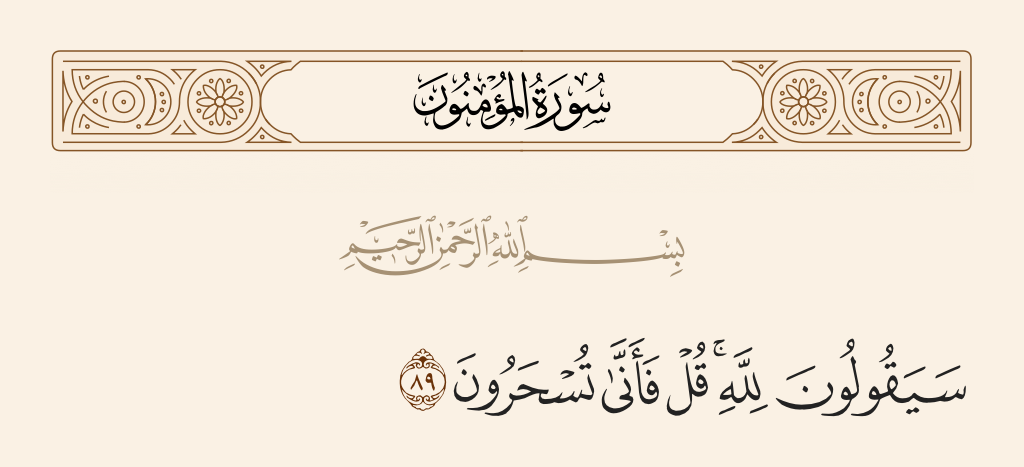 سُورَةُ المُؤْمِنُونَ
بِسْمِ ٱللَّهِ ٱلرَّحْمَٰنِ ٱلرَّحِيمِ
سَيَقُولُونَ لِلَّهِ ۚ قُلْ فَأَنَّىٰ تُسْحَرُونَ ٨٩